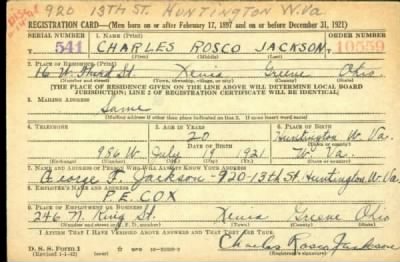 920 13TH ST. HUNTINGTON W. Va
REGISTRATION CARD—(Men born on or after February 17, 1897 and on or before December 31, 1921)
SERIAL NUMBER 1. NAME (Print) ORDER NUMBER
541 CHARLES ROSCO JACKSON 10559
(First) (Middle) (Last)
2. PLACE OF RESIDENCE (Print)
16 W. Third St. Xenia Greene Ohio
(Number and street) (Town, township, village, or city) (County) (State)
[THE PLACE OF RESIDENCE GIVEN ON THE LINE ABOVE WILL DETERMINE LOCAL BOARD
JURISDICTION; LINE 2 OF REGISTRATION CERTIFICATE WILL BE IDENTICAL]
3. MAILING ADDRESS
Same
(Mailing address if other than place indicated on line 2. If same insert word same)
4. TELEPHONE 5. AGE IN YEARS 6. PLACE OF BIRTH
20 Huntington W. Va.
DATE OF BIRTH (Town or county)
956 W July 1921 W. Va.
(Exchange) (Number) (Mo.) (Day) (Yr.) (State or country)
7. NAME AND ADDRESS OF PERSON WHO WILL ALWAYS KNOW YOUR ADDRESS
George F. Jackson - 920-13th St. Huntington W. Va.
8. EMPLOYER'S NAME AND ADDRESS
P.E. COX
9. PLACE OF EMPLOYMENT OR BUSINESS
246 N. King St. Xenia Greene Ohio
(Number and street or R. F. D. number) (Town) (County) (State)
I AFFIRM THAT I HAVE VERIFIED ABOVE ANSWERS AND THAT THEY ARE TRUE.
D. S. S. Form 1
(Revised 1-1-42) (over) Charles Rosco Jackson
(Registrant's signature)